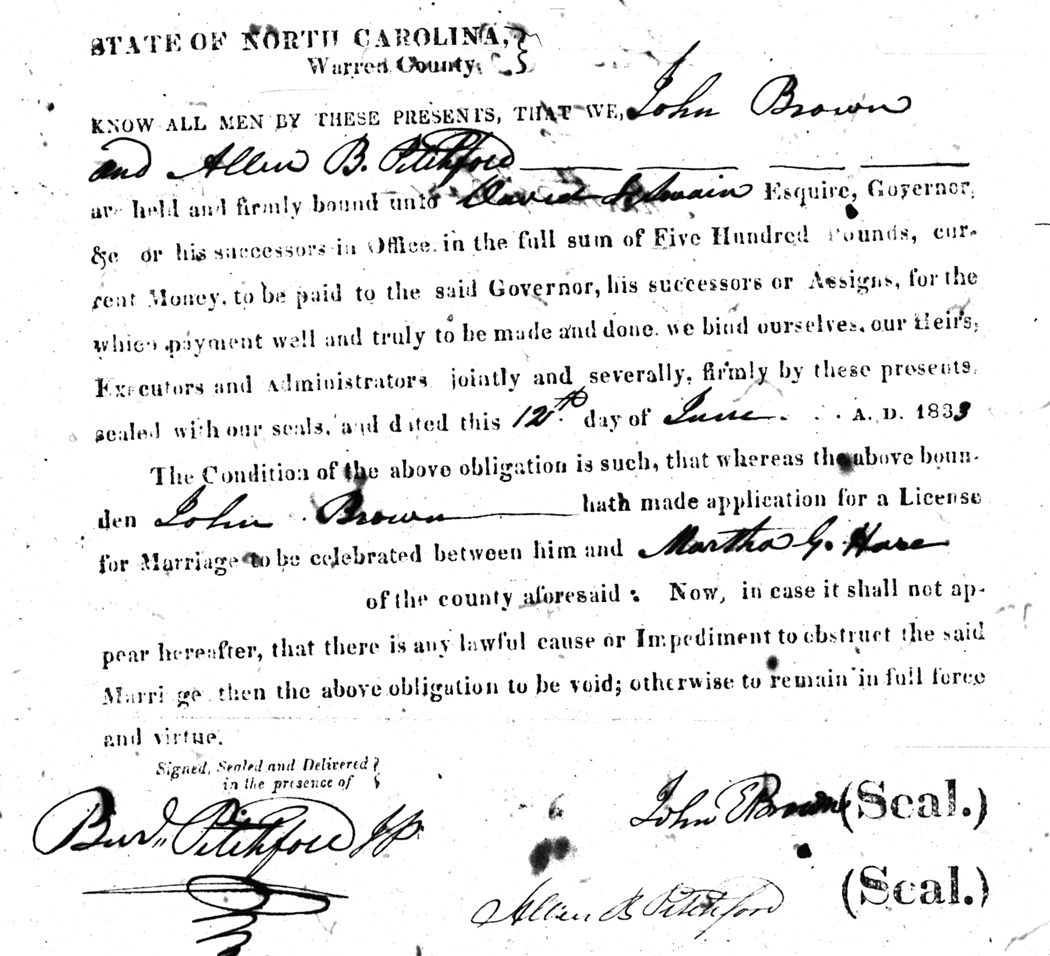 STATE OF NORTH CAROLINA,
Warren County.
KNOW ALL MEN BY THESE PRESENTS, THAT WE, John Brown
and Allen B. Pitchford
are held and firmly bound unto David L Swain Esquire, Governor,
&c or his successors in Office, in the full sum of Five Hundred Pounds, cur-
rent Money, to be paid to the said Governor, his successors or Assigns, for the
which payment well and truly to be made and done, we bind ourselves, our Heirs,
Executors and Administrators jointly and severally, firmly by these presents,
sealed with our seals, and dated this 12th. day of June A. D. 1833
The Condition of the above obligation is such, that whereas the above boun-
den John Brown hath made application for a License
for Marriage to be celebrated between him and Martha G. Hare
of the county aforesaid: Now, in case it shall not ap-
pear hereafter, that there is any lawful cause or Impediment to obstruct the said
Marriage, then the above obligation to be void; otherwise to remain in full force
and virtue.
Signed, Sealed and Delivered
in the presence of
John Brown (Seal.)
Pitchford JP
Allen B Pitchford (Seal.)